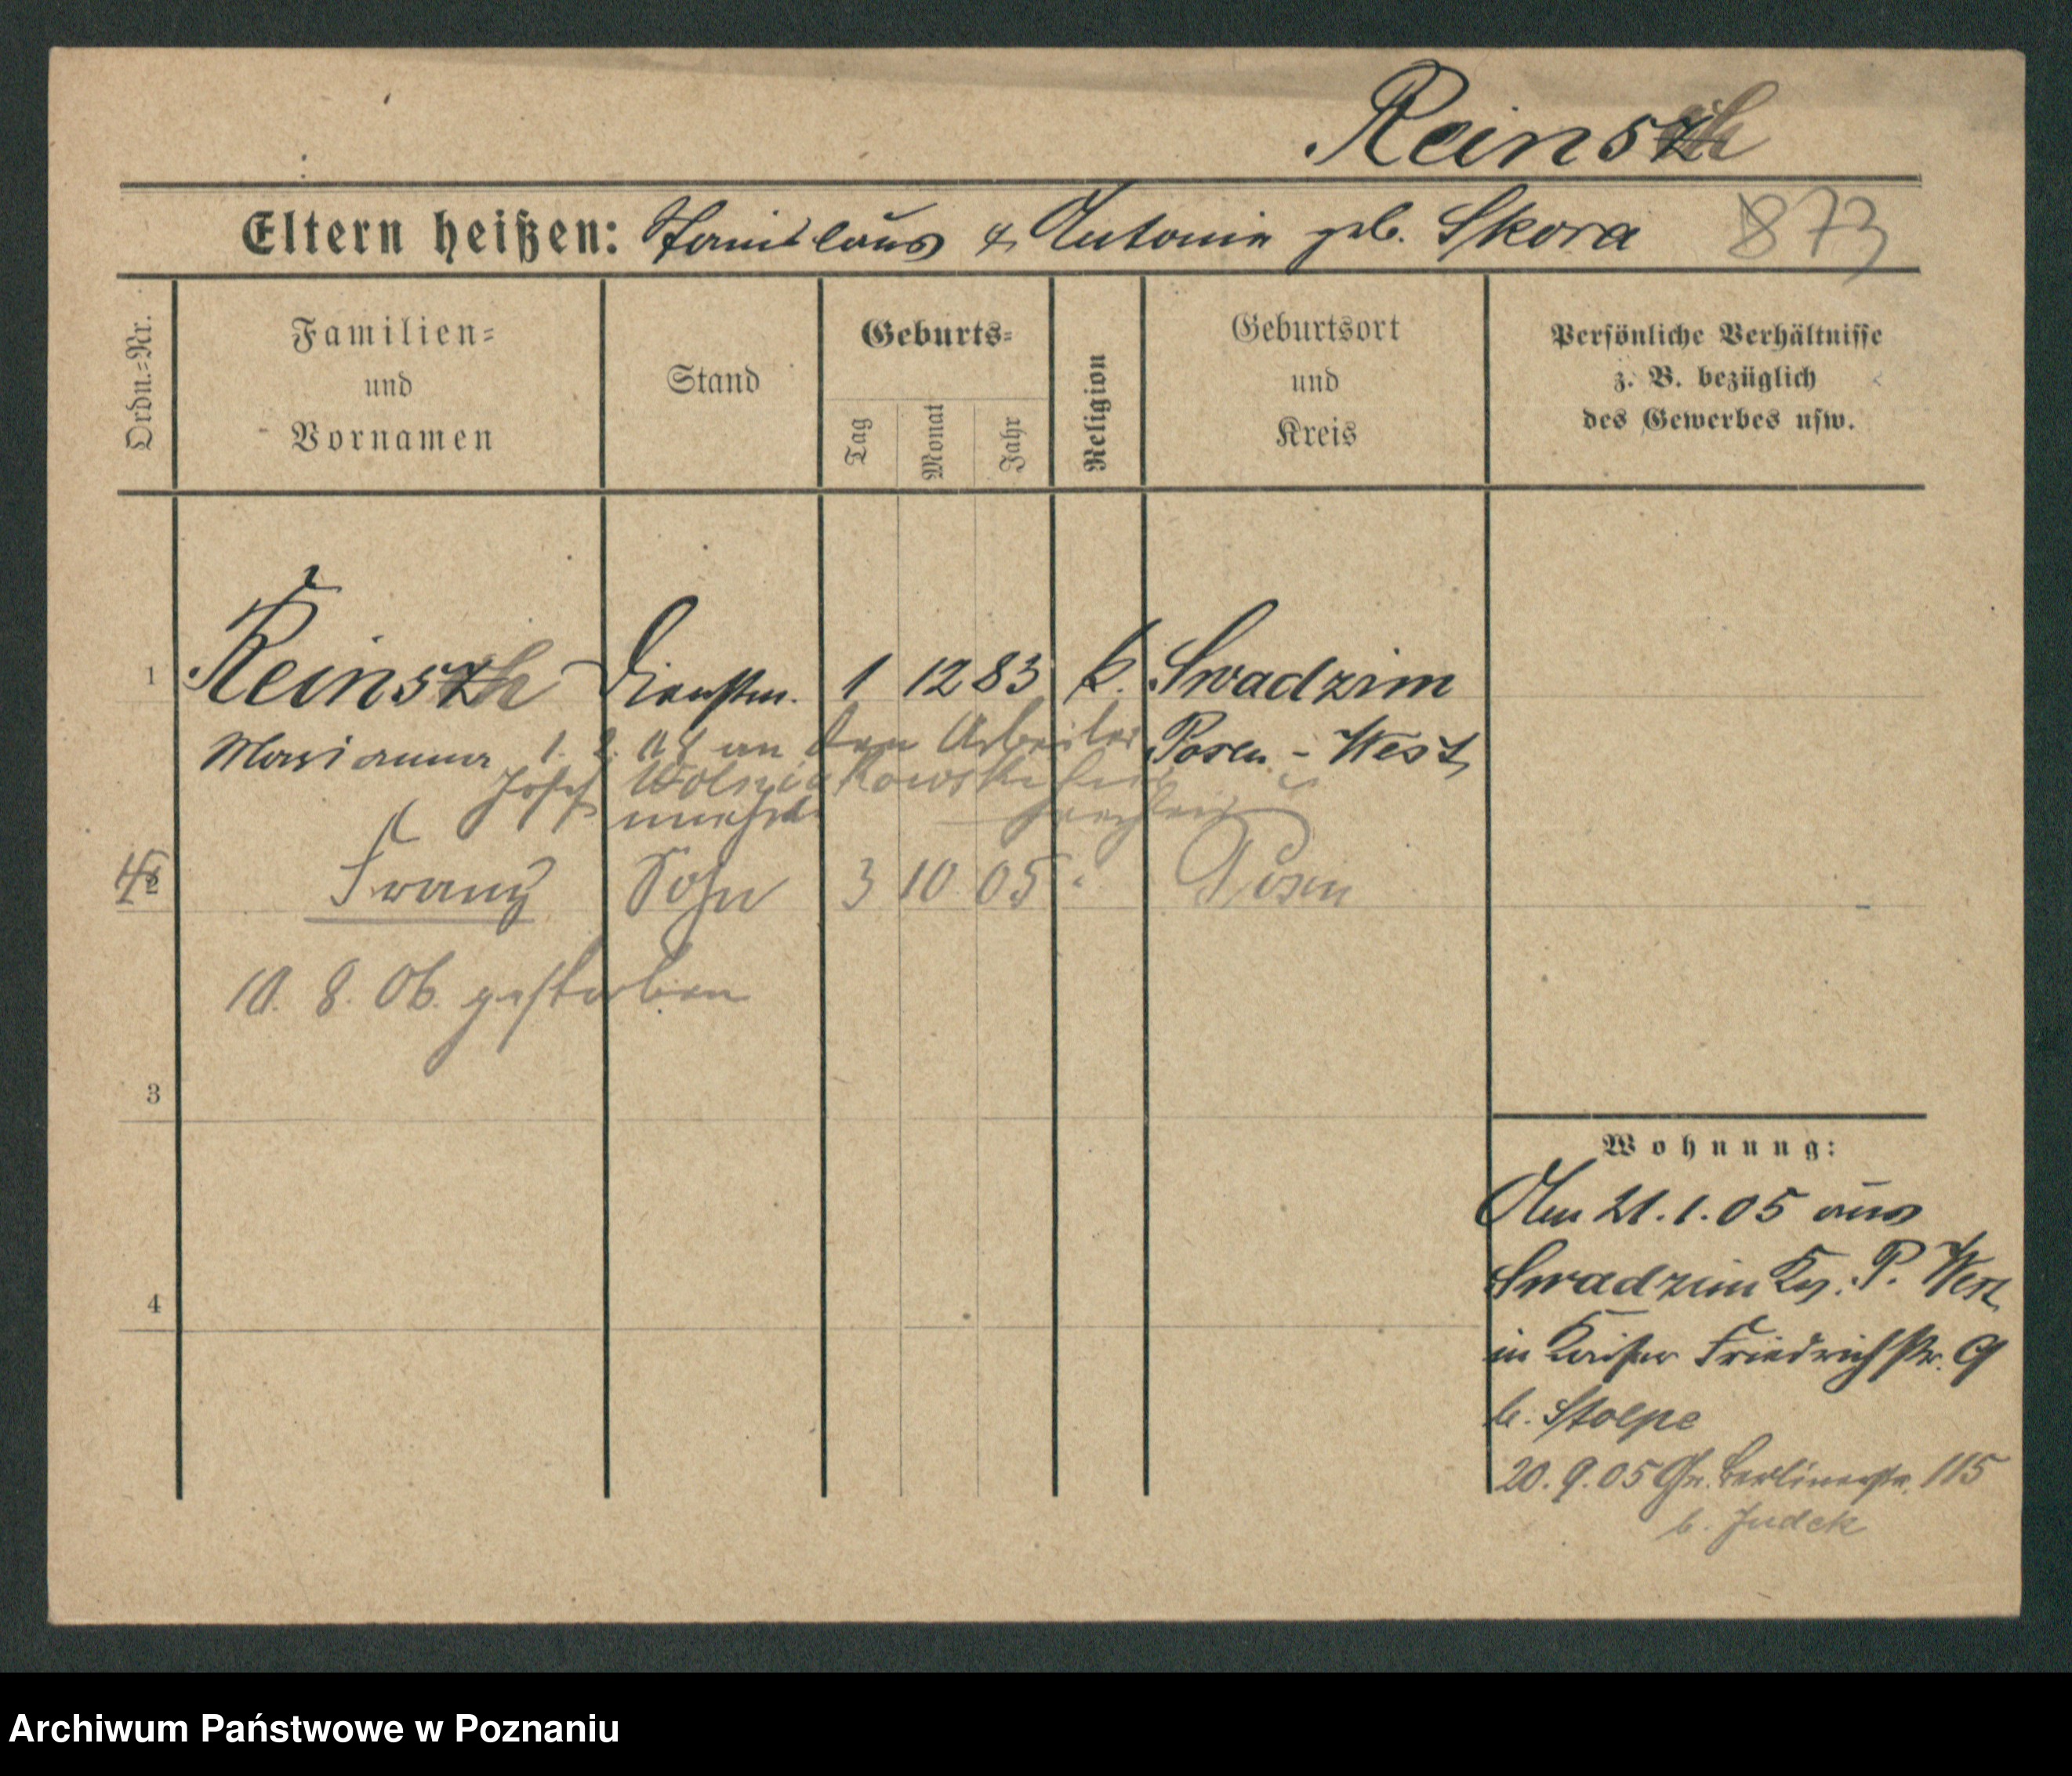 Reinsch
Eltern heißen: Stanislaus & Antonia geb. Skora 873
Ordn.=Nr.
Familien=
und
Vornamen
Stand
Geburts=
Tag
Monat
Jahr
Religion
Geburtsort
und
Kreis
Persönliche Verhältnisse
z. B. bezüglich
des Gewerbes usw.
1 Reinsch Dienstm. 1 12 83 k. Swadzim
Marianna Posen - West
1. 2. 08 an den Arbeiter
Josef
2 Franz Sohn 3 10 05 Posen
10. 8. 06. gestorben
3
4
Wohnung:
Am 21.1.05 aus
Swadzim Krs. P. West
in Kaiser Friedrichstr. 9
b. Stolpe
20.9.05 Gr. Berlinerstr. 115
b. Judek
Archiwum Państwowe w Poznaniu